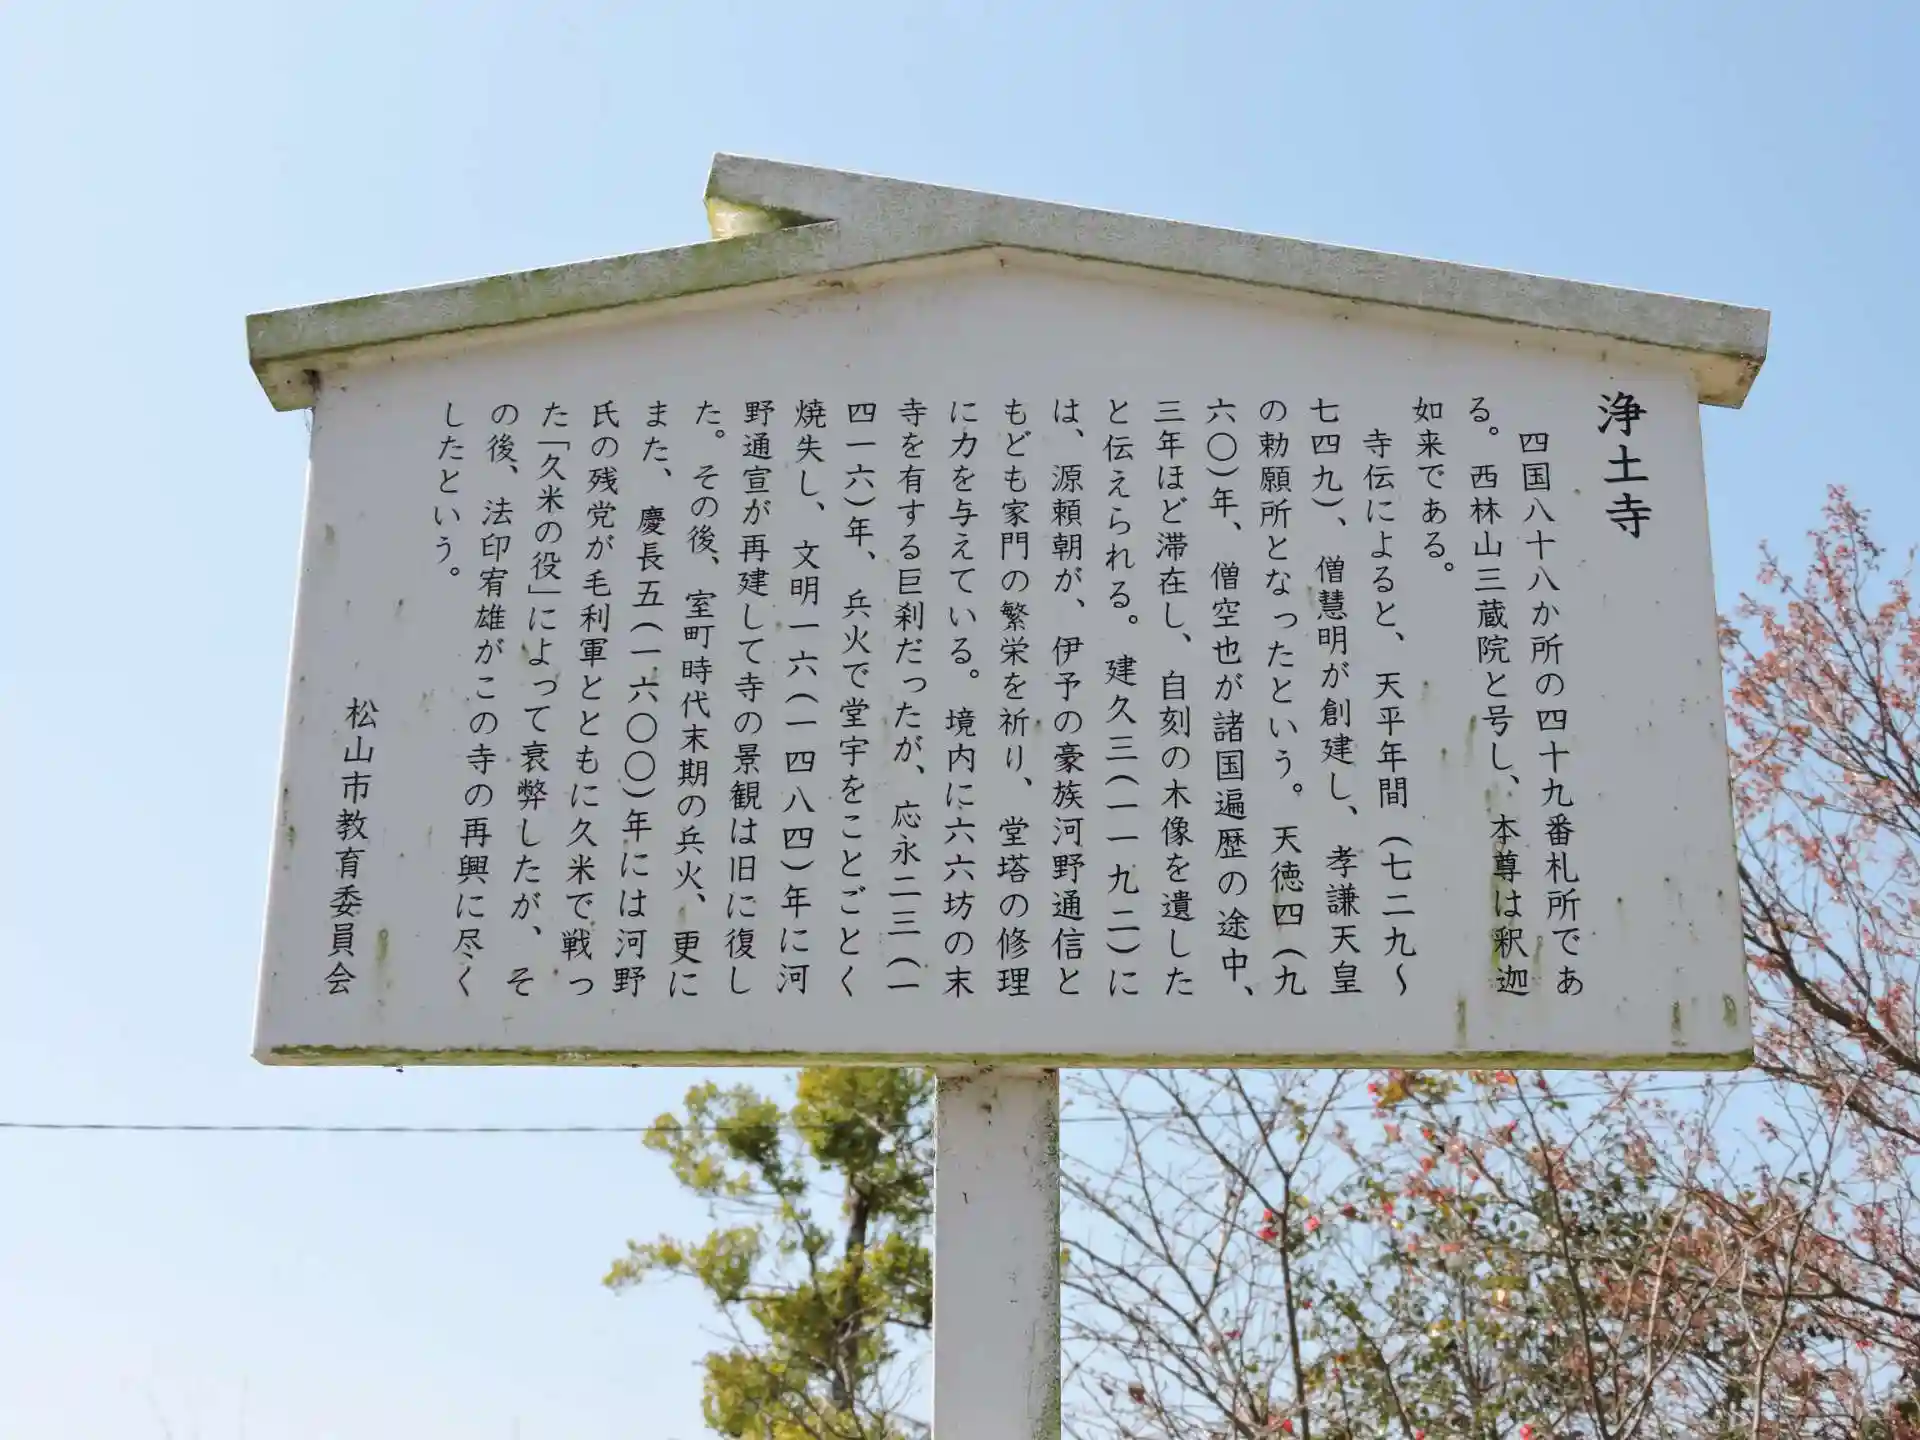 浄土寺
四国八十八か所の四十九番札所であ
る。西林山三蔵院と号し、本尊は釈迦
如来である。
寺伝によると、天平年間（七二九〜
七四九）、僧慧明が創建し、孝謙天皇
の勅願所となったという。天徳四（九
六〇）年、僧空也が諸国遍歴の途中、
三年ほど滞在し、自刻の木像を遺した
と伝えられる。建久三（一一九二）に
は、源頼朝が、伊予の豪族河野通信と
もども家門の繁栄を祈り、堂塔の修理
に力を与えている。境内に六六坊の末
寺を有する巨刹だったが、応永二三（一
四一六）年、兵火で堂宇をことごとく
焼失し、文明一六（一四八四）年に河
野通宣が再建して寺の景観は旧に復し
た。その後、室町時代末期の兵火、更に
また、慶長五（一六〇〇）年には河野
氏の残党が毛利軍とともに久米で戦っ
た「久米の役」によって衰弊したが、そ
の後、法印宥雄がこの寺の再興に尽く
したという。
松山市教育委員会